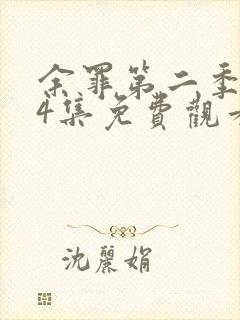 余罪第二季
4集免費觀看
沈麗娟